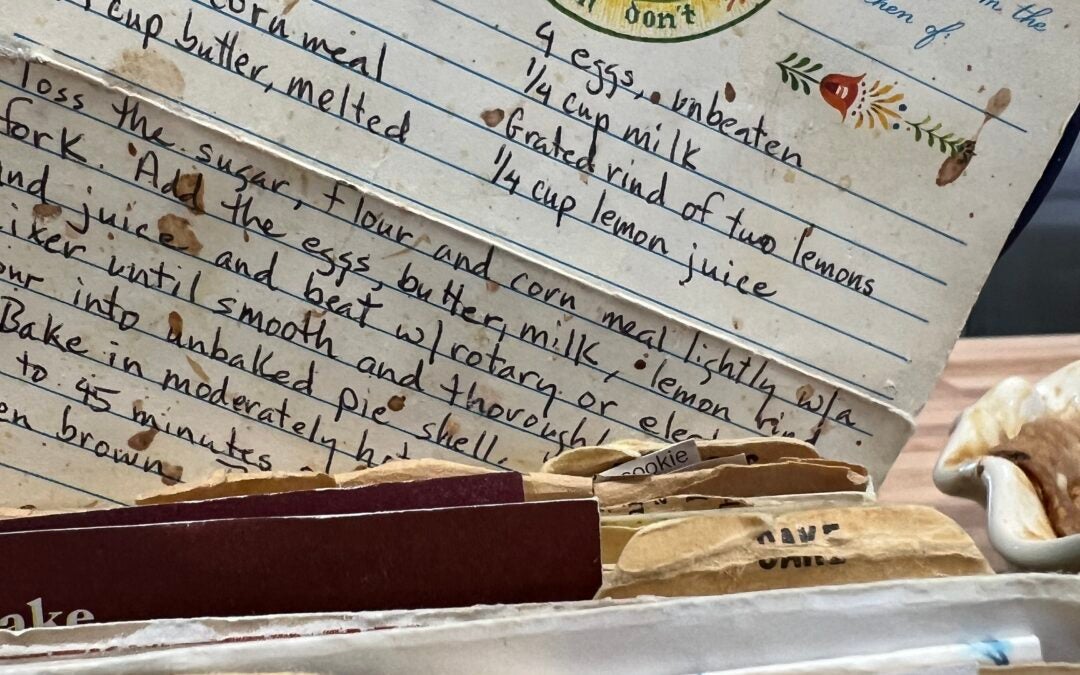 don't
in the
kitchen of:
corn meal
cup butter, melted
4 eggs, unbeaten
1/4 cup milk
Grated rind of two lemons
1/4 cup lemon juice
Toss the sugar, flour and corn meal lightly w/a
fork. Add the eggs, butter, milk, lemon rind
and juice and beat w/rotary or elec
mixer until smooth and thorough
our into unbaked pie shell.
Bake in moderately hot
to 45 minutes
en brown
cookie
CAKE
ake